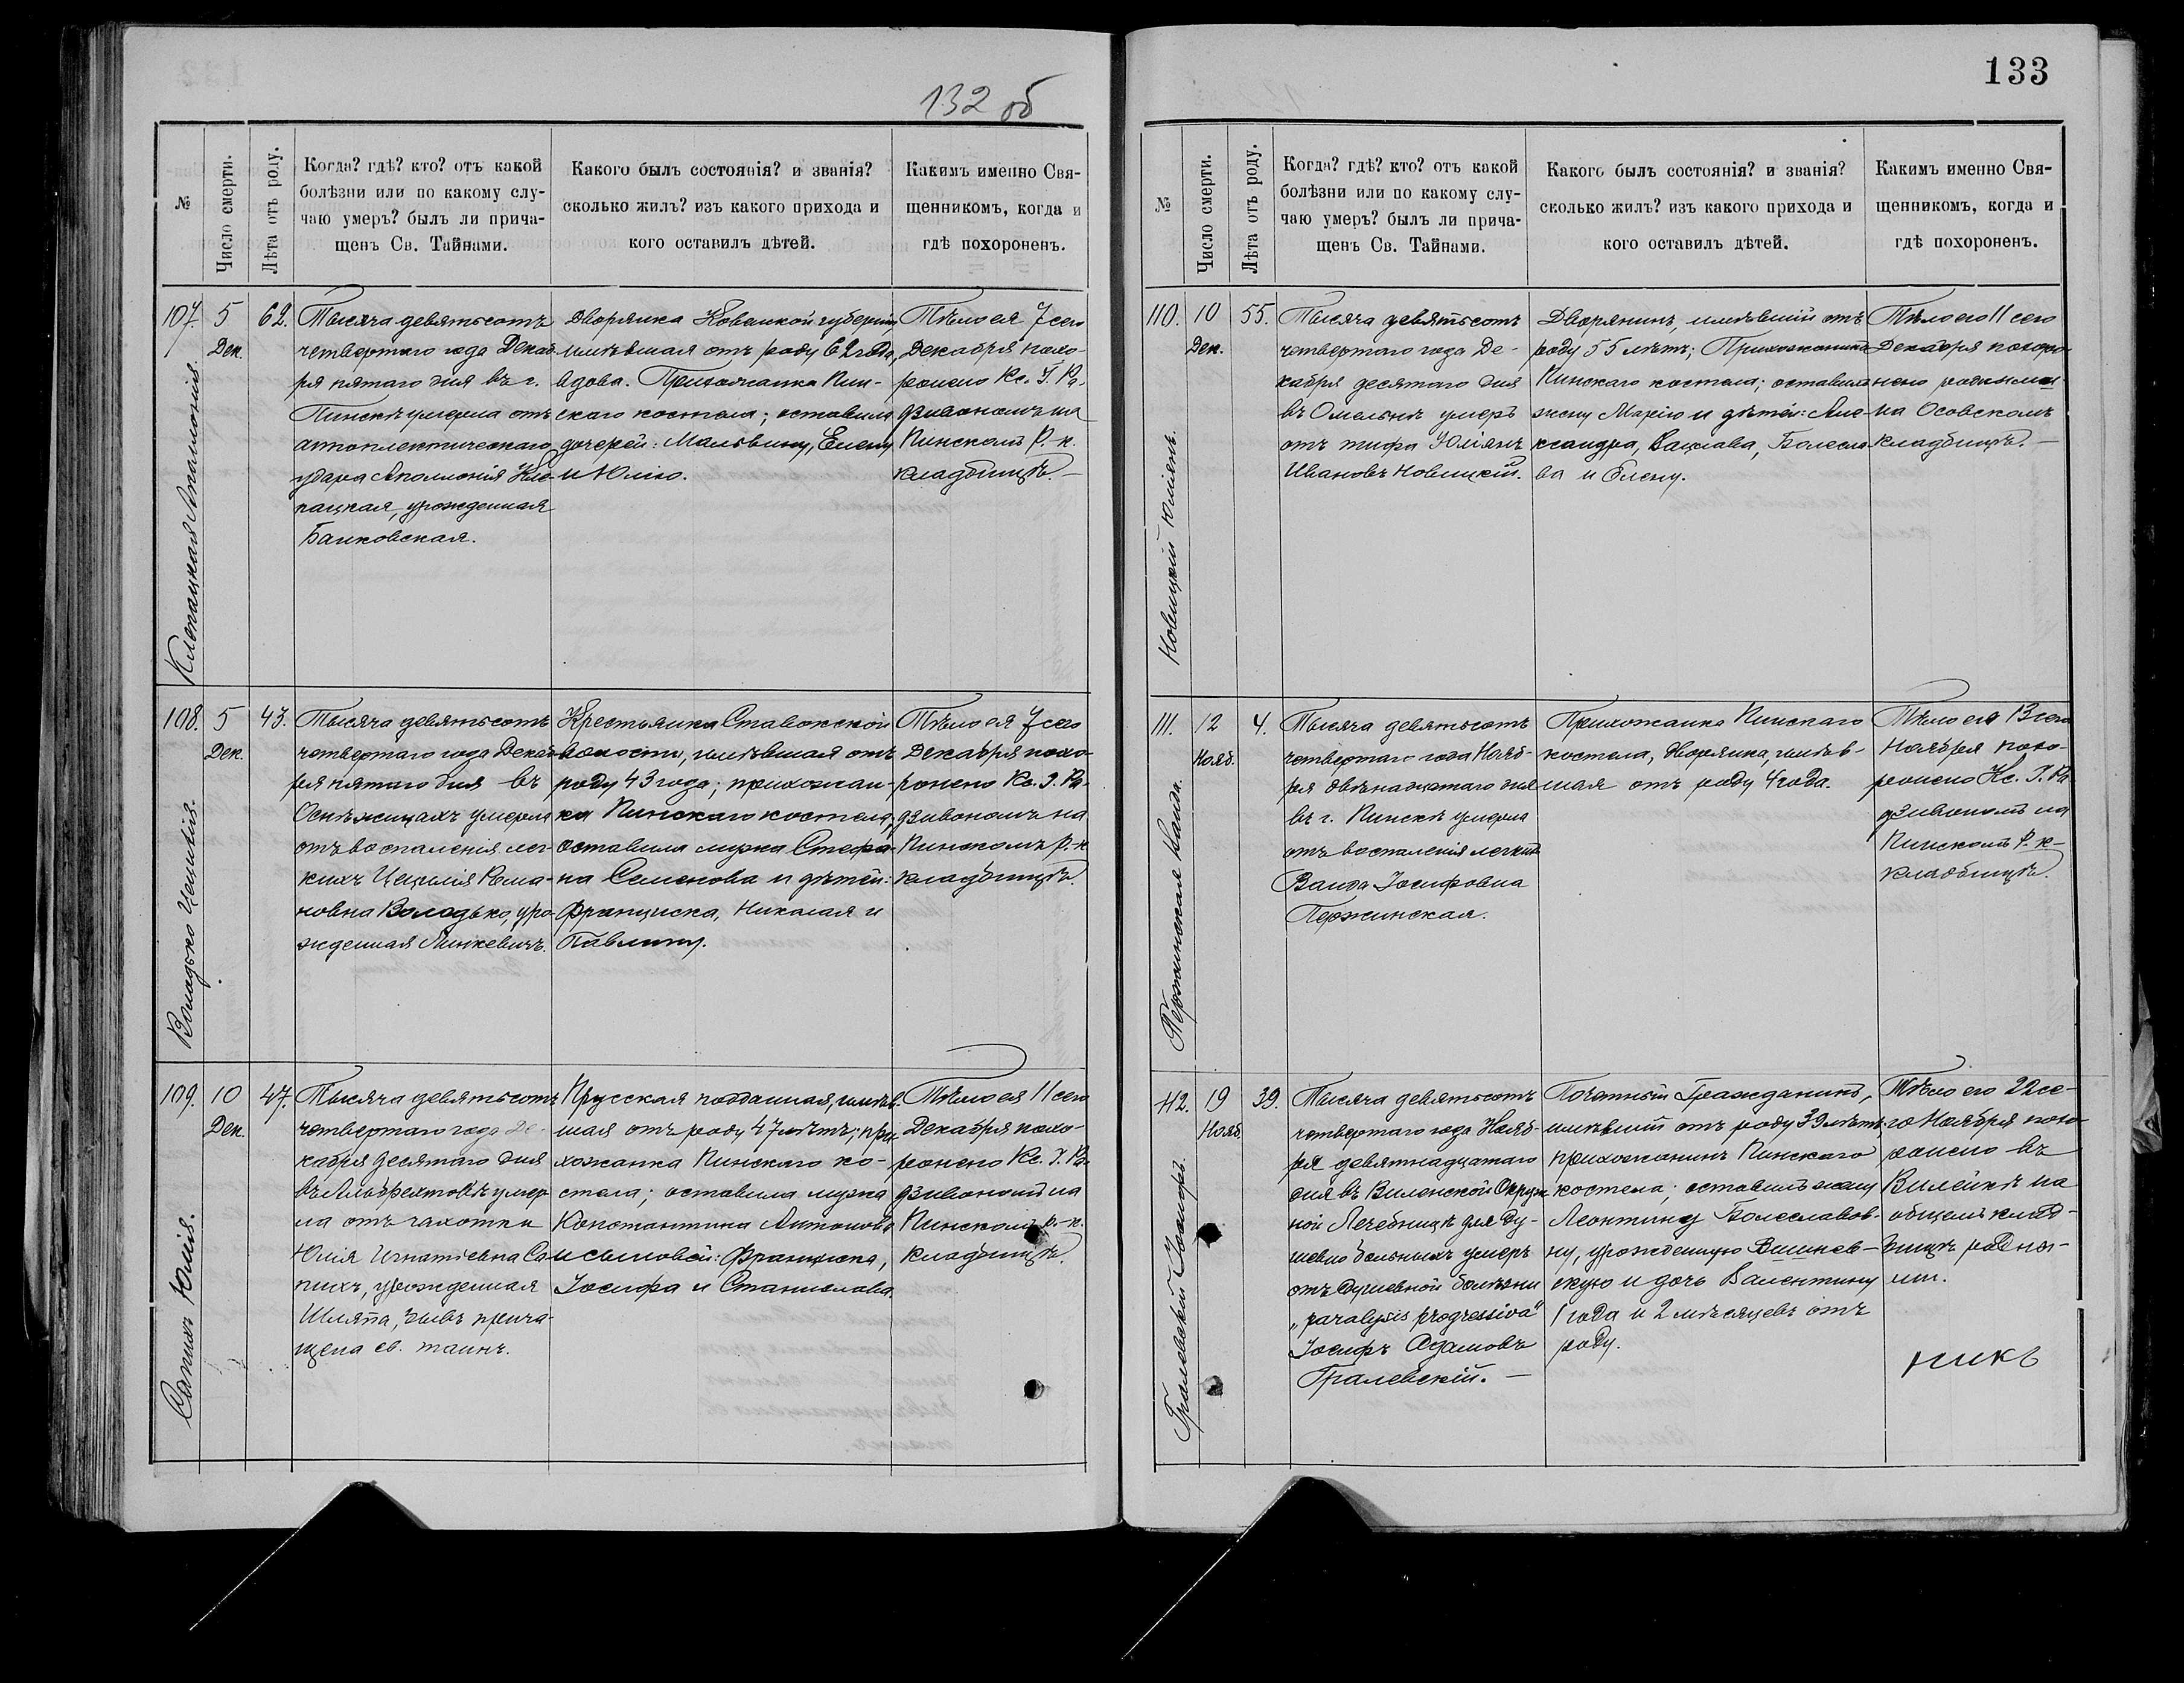 132 об
№
Число смерти.
Лѣта отъ роду.
Когда? гдѣ? кто? отъ какой
болѣзни или по какому слу-
чаю умеръ? былъ ли прича-
щенъ Св. Тайнами.
Какого былъ состоянія? и званія?
сколько жилъ? изъ какого прихода и
кого оставилъ дѣтей.
Какимъ именно Свя-
щенникомъ, когда и
гдѣ похороненъ.
107.
5
Дек.
62.
Клепацкая Аполлонія
Тысяча девятьсотъ
четвертаго года Декаб-
ря пятаго дня въ г.
Пинскѣ умерла отъ
апоплектическаго
удара Аполлонія Кле-
пацкая, урожденная
Банковская.
Дворянка Ковенской губерніи,
имѣвшая отъ роду 62 года,
вдова. Прихожанка Пин-
скаго костела; оставила
дочерей: Мальвину, Елену
и Юлію.
Тѣло ея 7 сего
Декабря похо-
ронено Кс. І. Ра-
дзивономъ на
Пинскомъ Р.-к.
кладбищѣ.—
108.
5
Дек.
43.
Володько Цецилія.
Тысяча девятьсотъ
четвертаго года Декаб-
ря пятаго дня въ
Оснѣжицахъ умерла
отъ воспаленія лег-
кихъ Цецилія Рома-
новна Володько, уро-
жденная Линкевичъ.
Крестьянка Ставокской
волости, имѣвшая отъ
роду 43 года; прихожан-
ка Пинскаго костела,
оставила мужа Стефа-
на Семенова и дѣтей:
Франциска, Николая и
Павлину.
Тѣло ея 7 сего
Декабря похо-
ронено Кс. І. Ра-
дзивономъ на
Пинскомъ Р.-к
кладбищѣ.
109.
10
Дек.
47.
Сапихъ Юлія.
Тысяча девятьсотъ
четвертаго года Де-
кабря десятаго дня
въ Альбрехтовѣ умер-
ла отъ чахотки
Юлія Игнатіевна Са-
пихъ, урожденная
Шляпа, бывъ прича-
щена св. таинъ.
Прусская подданная, имѣв-
шая отъ роду 47 лѣтъ; при-
хожанка Пинскаго ко-
стела; оставила мужа
Константина Антонова
и сыновей: Франциска,
Іосифа и Станислава.
Тѣло ея 11 сего
Декабря похо-
ронено Кс. І. Ра-
дзивономъ на
Пинскомъ р.-к.
кладбищѣ.
133
№
Число смерти.
Лѣта отъ роду.
Когда? гдѣ? кто? отъ какой
болѣзни или по какому слу-
чаю умеръ? былъ ли прича-
щенъ Св. Тайнами.
Какого былъ состоянія? и званія?
сколько жилъ? изъ какого прихода и
кого оставилъ дѣтей.
Какимъ именно Свя-
щенникомъ, когда и
гдѣ похороненъ.
110.
10
Дек.
55.
Новицкій Юліанъ.
Тысяча девятьсотъ
четвертаго года Де-
кабря десятаго дня
въ Омельнѣ умеръ
отъ тифа Юліянъ
Ивановъ Новицкій.
Дворянинъ, имѣвшій отъ
роду 55 лѣтъ; Прихожанинъ
Пинскаго костела; оставилъ
жену Марію и дѣтей: Але-
ксандра, Вацлава, Болесла-
ва и Елену.
Тѣло его 11 сего
Декабря похоро-
нено родными
на Осовскомъ
кладбищѣ.—
111.
12
Нояб.
4.
Пержинская Ванда.
Тысяча девятьсотъ
четвертаго года Нояб-
ря двѣнадцатаго дня
въ г. Пинскѣ умерла
отъ воспаленія легкихъ
Ванда Іосифовна
Пержинская.
Прихожанка Пинскаго
костела, дворянка, имѣв-
шая отъ роду 4 года.
Тѣло ея 13 сего
Ноября похо-
ронено Кс. І. Ра
дзивономъ на
Пинскомъ Р. к-
кладбищѣ.
112.
19
Нояб.
39.
Гралевскій Іосифъ.
Тысяча девятьсотъ
четвертаго года Нояб-
ря девятнадцатаго
дня въ Виленской Окруж
ной Лечебницѣ для Ду-
шевно больныхъ умеръ
отъ душевной болѣзни
„paralysis progressiva"
Іосифъ Адамовъ
Гралевскій.—
Почетный Гражданинъ,
имѣвшій отъ роду 39 лѣтъ;
прихожанинъ Пинскаго
костела; оставилъ жену
Леонтину Болеславов-
ну, урожденную Вишнев-
скую и дочь Валентину
1 года и 2 мѣсяцевъ отъ
роду.
Тѣло его 22 се-
го Ноября похо-
ронено въ
Вилейкѣ на
общемъ клад-
бищѣ родны-
ми.